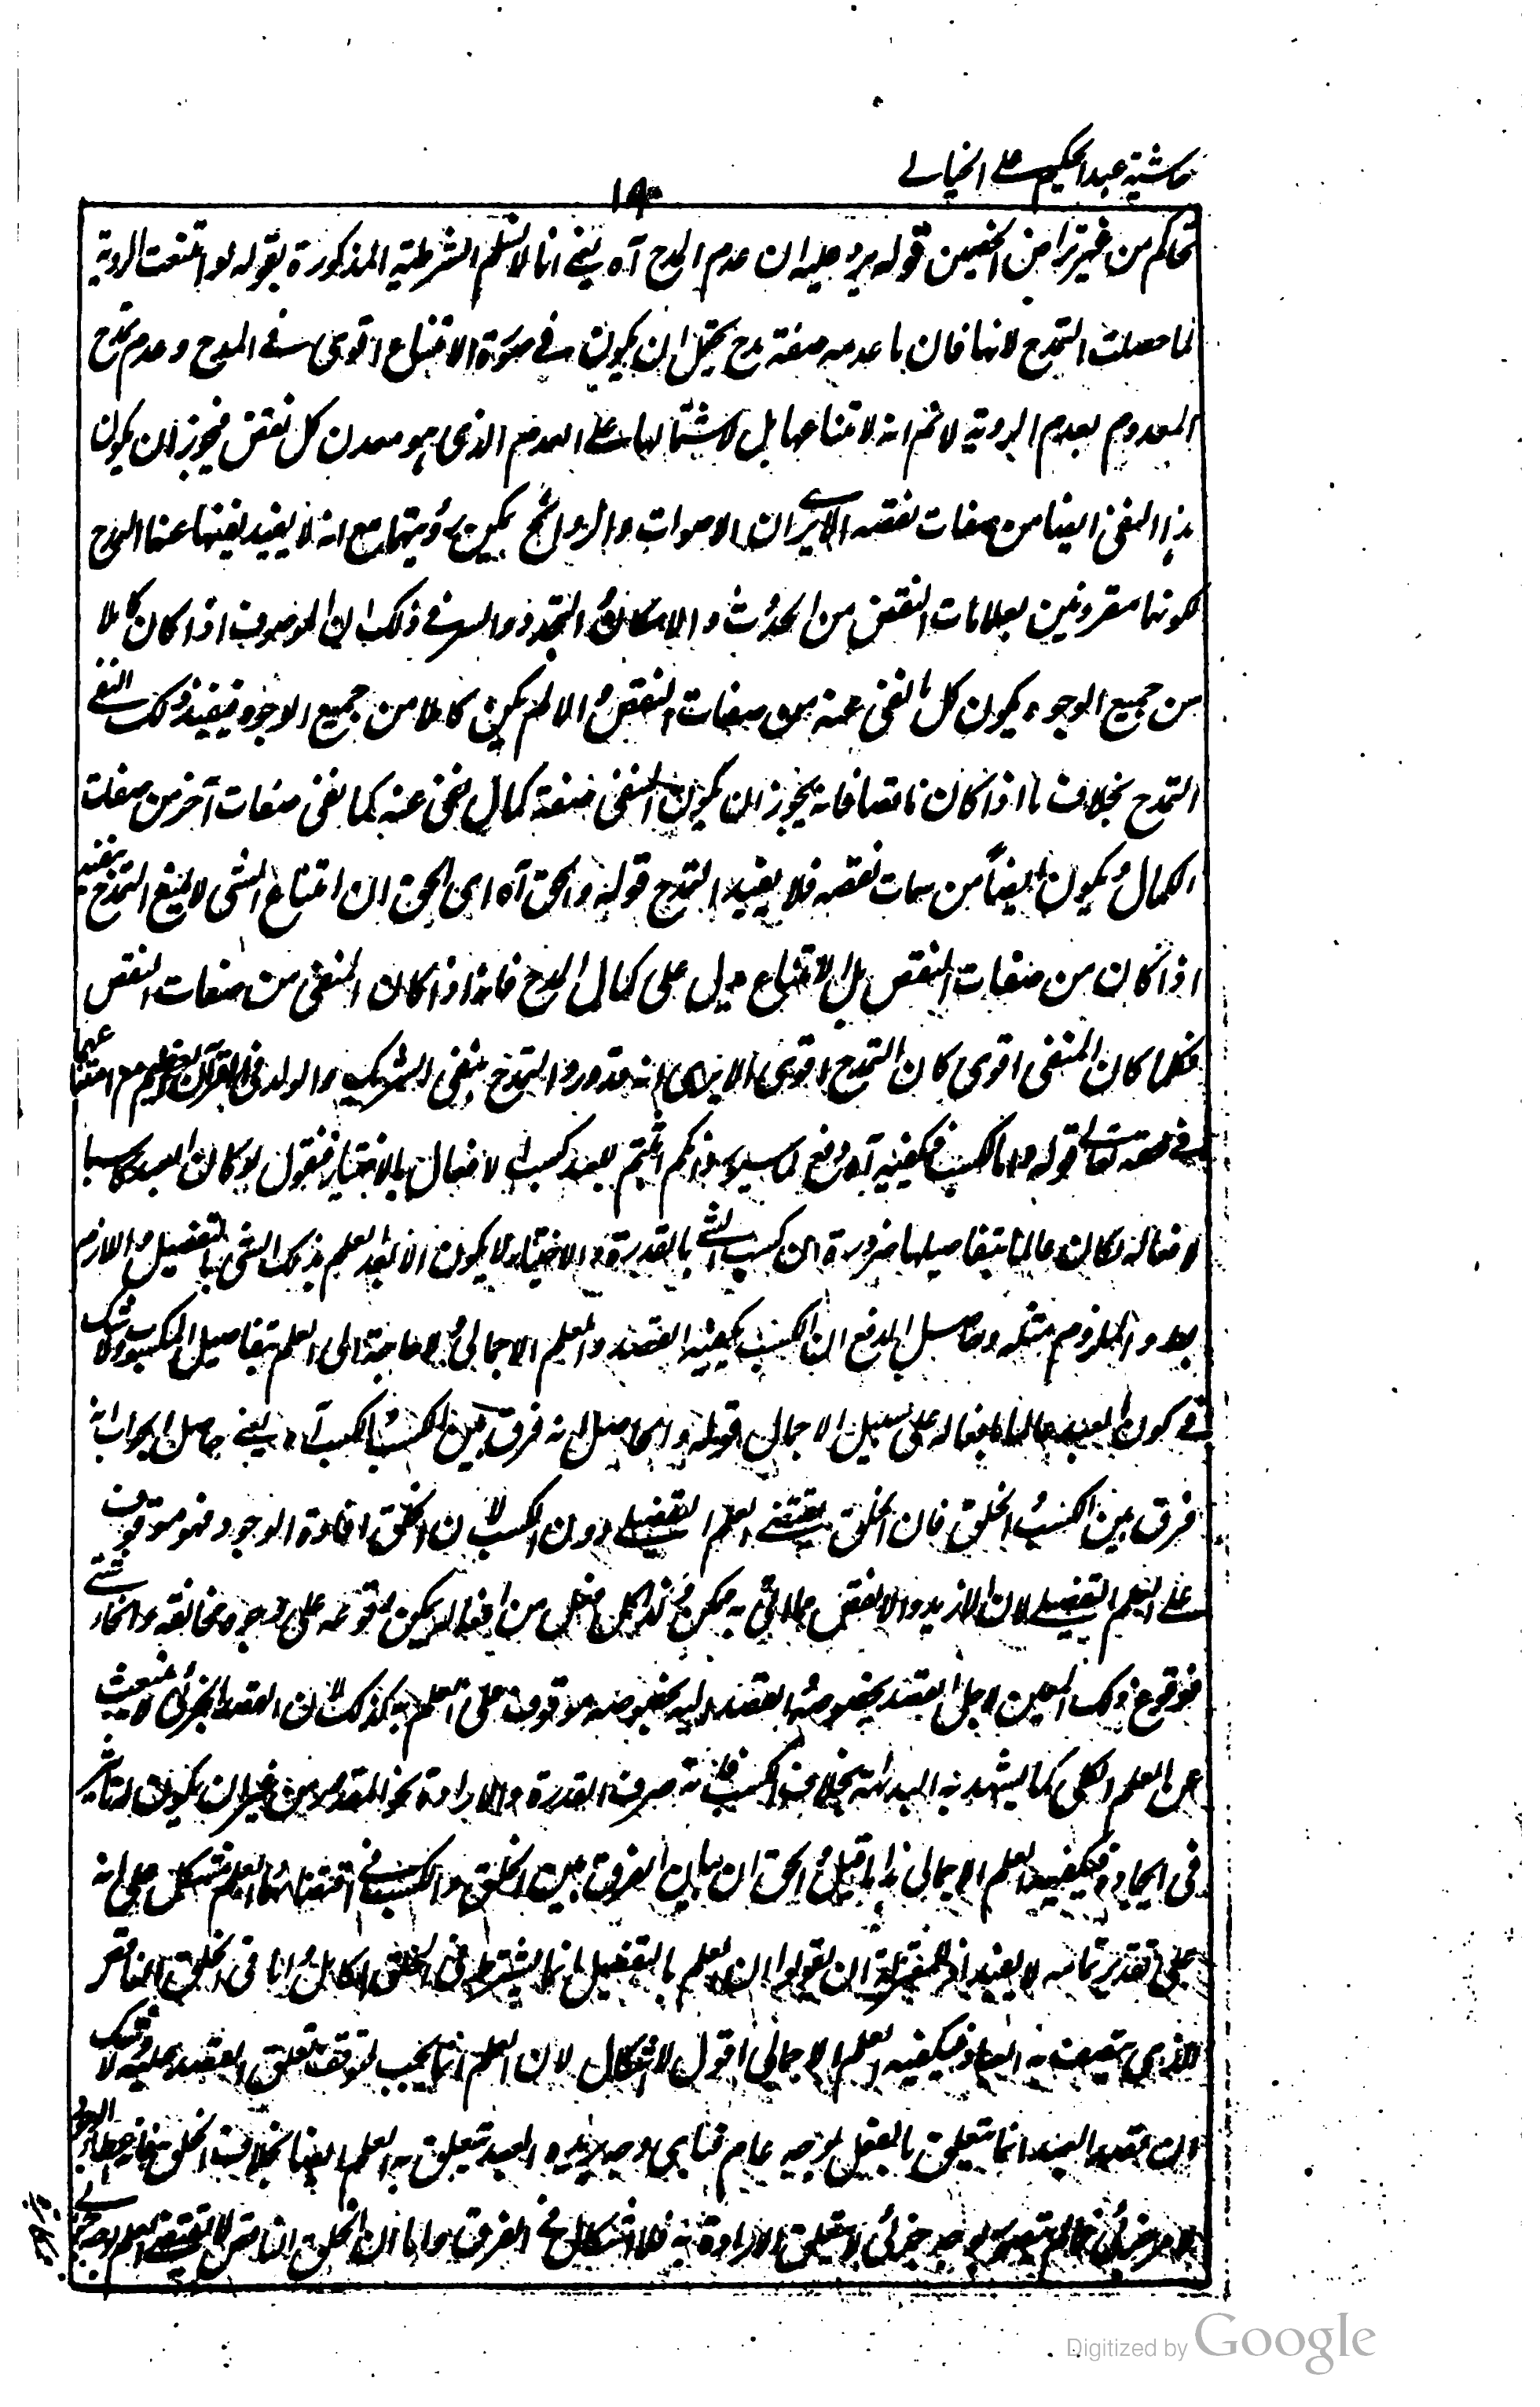 حاشية عبد الحكيم على الخيالى
١٩٠
تحاكم من غير تراض الخصمين قوله يرد عليه ان عدم المدح آه يعنى انا لا نسلم الشرطية المذكورة بقوله لو امتنعت الروية
لما حصلت التمدح لانها فان ما عدمه صفة مدح يحتمل ان يكون فى صورة الامتناع اقوى فى المدح وعدم تمدح
المعدوم بعدم الروية لا نم انه لامتناعها بل لاشتمالها على العدم الذى هو معدن كل نقص فيجوز ان يكون
هذا النفى ايضا من صفات نقصه الا يرى ان الاصوات والروائح يمكن رؤيتهما مع انه لا يفيد نفيها عنها المدح
لكونها مقرونين بعلامات النقص من الحدوث والامكان والتجدد والسر فى ذلك ان الموصوف اذا كان كاملا
من جميع الوجوه يكون كل نفى عنه من صفات النقص والا لم يكن كاملا من جميع الوجوه فيفيد ذلك النفى
التمدح بخلاف ما اذا كان ناقصا فانه يجوز ان يكون النفى صفة كمال نفى عنه كما نفى صفات آخر من صفات
الكمال ويكون ايضاً من سمات نقصه فلا يفيد التمدح قوله والحق آه اى الحق ان امتناع الشى لا يمنع التمدح بنفيه
اذا كان من صفات النقص بل الامتناع يدل على كمال المدح فانه اذا كان المنفى من صفات النقص
فكلما كان المنفى اقوى كان التمدح اقوى الا يرى انه قد ورد التمدح بنفى الشريك والولد فى القرآن العظيم مع امتناعهما
فى حقه تعالى قوله واما الكسب فيكفيه آه دفع لما سيورد انكم اثبتم للعبد كسب الافعال بالاختيار فنقول لو كان العبد كاسبا
لافعاله لكان عالما بتفاصيلها ضرورة ان كسب الشى بالقدرة والاختيار لا يكون الا بعد العلم بذلك الشى بالتفصيل واللازم
بط والملزوم مثله وحاصل الدفع ان الكسب يكفيه القصد والعلم الاجمالى ولا حاجة الى العلم بتفاصيل المكسوب ولا شك
فى كون العبد عالما بافعاله على سبيل الاجمال قوله والحاصل انه فرق بين الكسب والكسب آه يعنى حاصل الجواب انه
فرق بين الكسب والخلق فان الخلق يقتضى العلم التفصيلى دون الكسب لان الخلق افادة الوجود فهو موقوف
على العلم التفصيلى لان الازيد والانقص مما اتى به ممكن فكل فعل من افعاله يمكن وقوعه على وجوه مخالفة وانحاء شتى
فوقوع ذلك المعين لاجل القصد بخصوصه والقصد اليه بخصوصه موقوف على العلم به كذلك لان القصد الجزئى لا ينبعث
عن العلم الكلى كما يشهد به البداهة بخلاف الكسب فانه صرف القدرة والارادة نحو المقدور من غير ان يكون له تاثير
فى ايجاده فيكفيه العلم الاجمالى هذا ما قيل والحق ان بيان الفرق بين الخلق والكسب فى اقتضائهما العلم مشكل على انه
على تقدير تمامه لا يفيد اذ للمعتزلة ان يقولوا ان العلم بالتفصيل انما يشترط فى الخلق الكامل واما فى الخلق الناقص
الذى يتصف به العباد فيكفيه العلم الاجمالى اقول لا اشكال لان العلم انما يجب لتوقف تعلق القصد عليه ولا شك
ان قصد العبد انما يتعلق بالفعل بوجه عام فباى وجه يريده العبد يتعلق به العلم ايضا بخلاف الخلق فانه اعطاء الوجود
لامر جزئى فما لم يتصور بوجه جزئى لا يتعلق الارادة به فلا اشكال فى الفرق واما ان الخلق الناقص لا يقتضى العلم